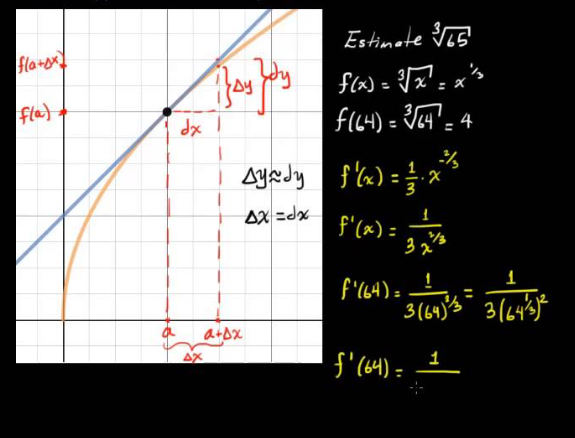 f(a+Δx)
f(a)
Δy
dy
dx
Δy≈dy
Δx=dx
a
a+Δx
Δx
Estimate ∛65
f(x) = ∛x = x^1/3
f(64) = ∛64 = 4
f'(x) = 1/3 · x^-2/3
f'(x) = 1/(3x^2/3)
f'(64) = 1/(3(64)^2/3) = 1/(3(64^1/3)^2)
f'(64) = 1/